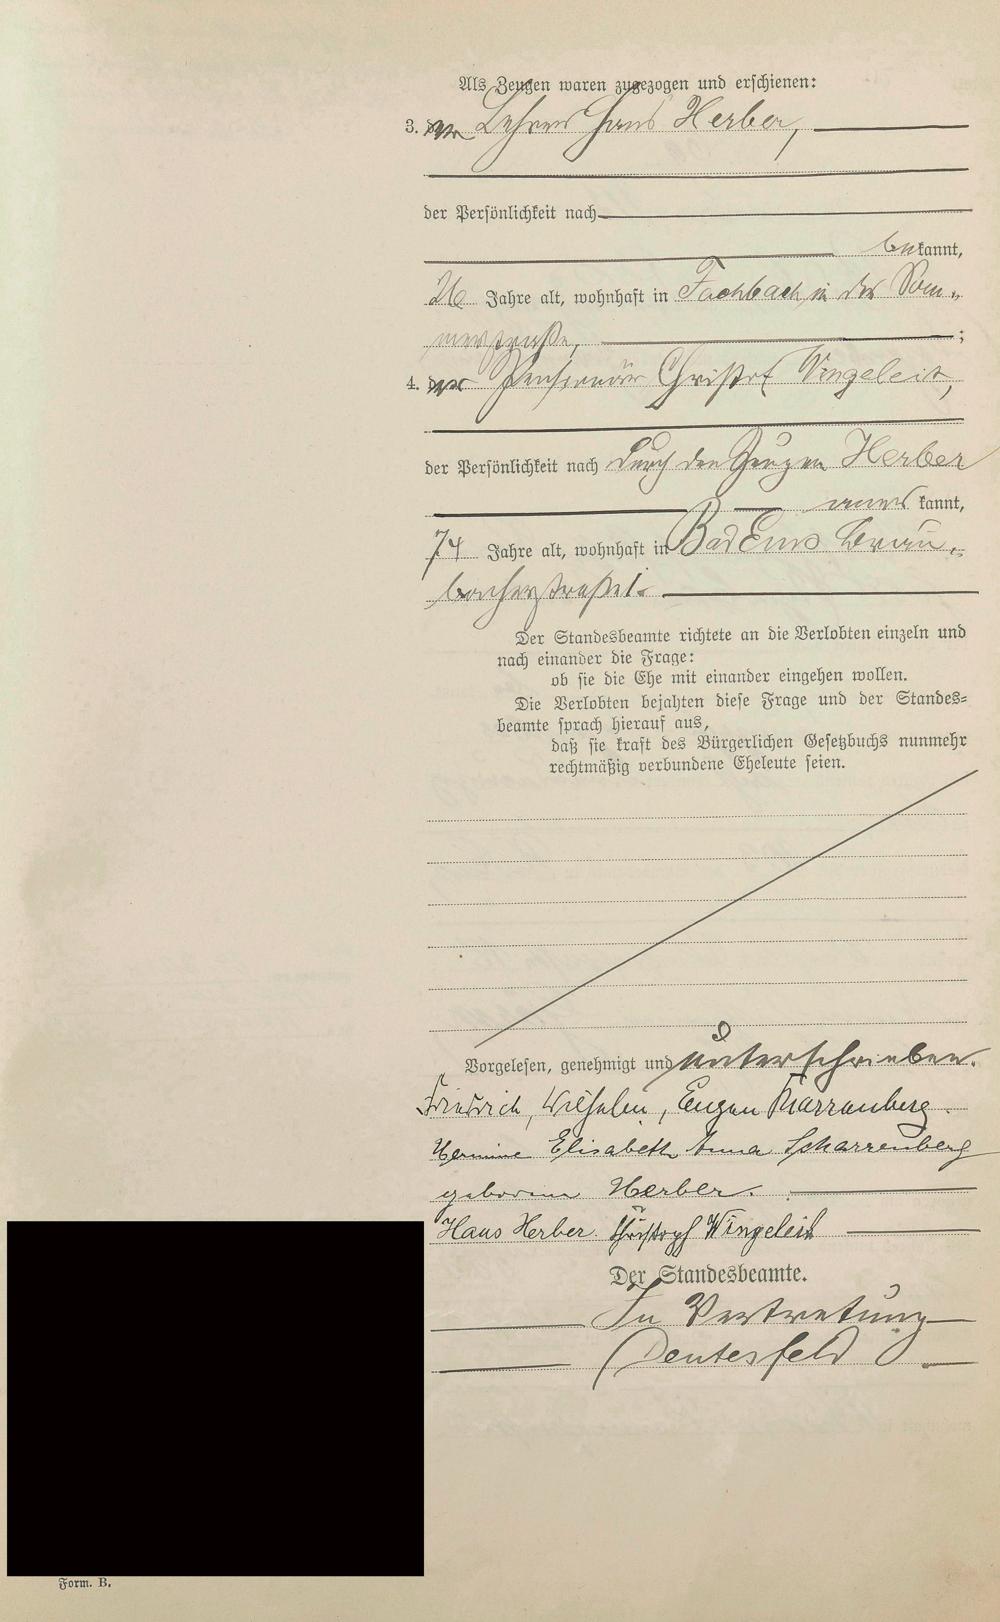 Als Zeugen waren zugezogen und erschienen:
3. der Lehrer Hans Herber,
der Persönlichkeit nach
bekannt,
26 Jahre alt, wohnhaft in Fachbach in der Som-
merstraße, ;
4. der Pensionär Christof Wingeleit,
der Persönlichkeit nach durch den Zeugen Herber
anerkannt,
74 Jahre alt, wohnhaft in Bad Ems Brau-
bacherstraße 1.
Der Standesbeamte richtete an die Verlobten einzeln und
nach einander die Frage:
ob sie die Ehe mit einander eingehen wollen.
Die Verlobten bejahten diese Frage und der Standes-
beamte sprach hierauf aus,
daß sie kraft des Bürgerlichen Gesetzbuchs nunmehr
rechtmäßig verbundene Eheleute seien.
Vorgelesen, genehmigt und unterschrieben.
Friedrich, Wilhelm, Eugen Scharrenberg.
Hermine Elisabeth Anna Scharrenberg
geborene Herber.
Hans Herber. Christoph Wingeleit
Der Standesbeamte.
In Vertretung
Deutesfeld
Form. B.